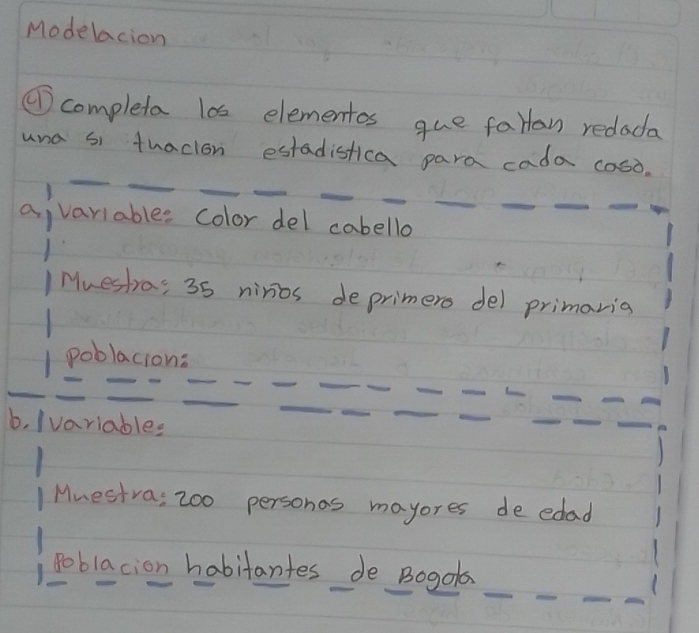 Modelacion
④ completa los elementos que faltan redacta
una si tuacion estadistica para cada caso.
a, variable: color del cabello
Muestra: 35 niños de primero del primaria
poblacion:
b. variable:
Muestra: 200 personas mayores de edad
Poblacion habitantes de Bogota